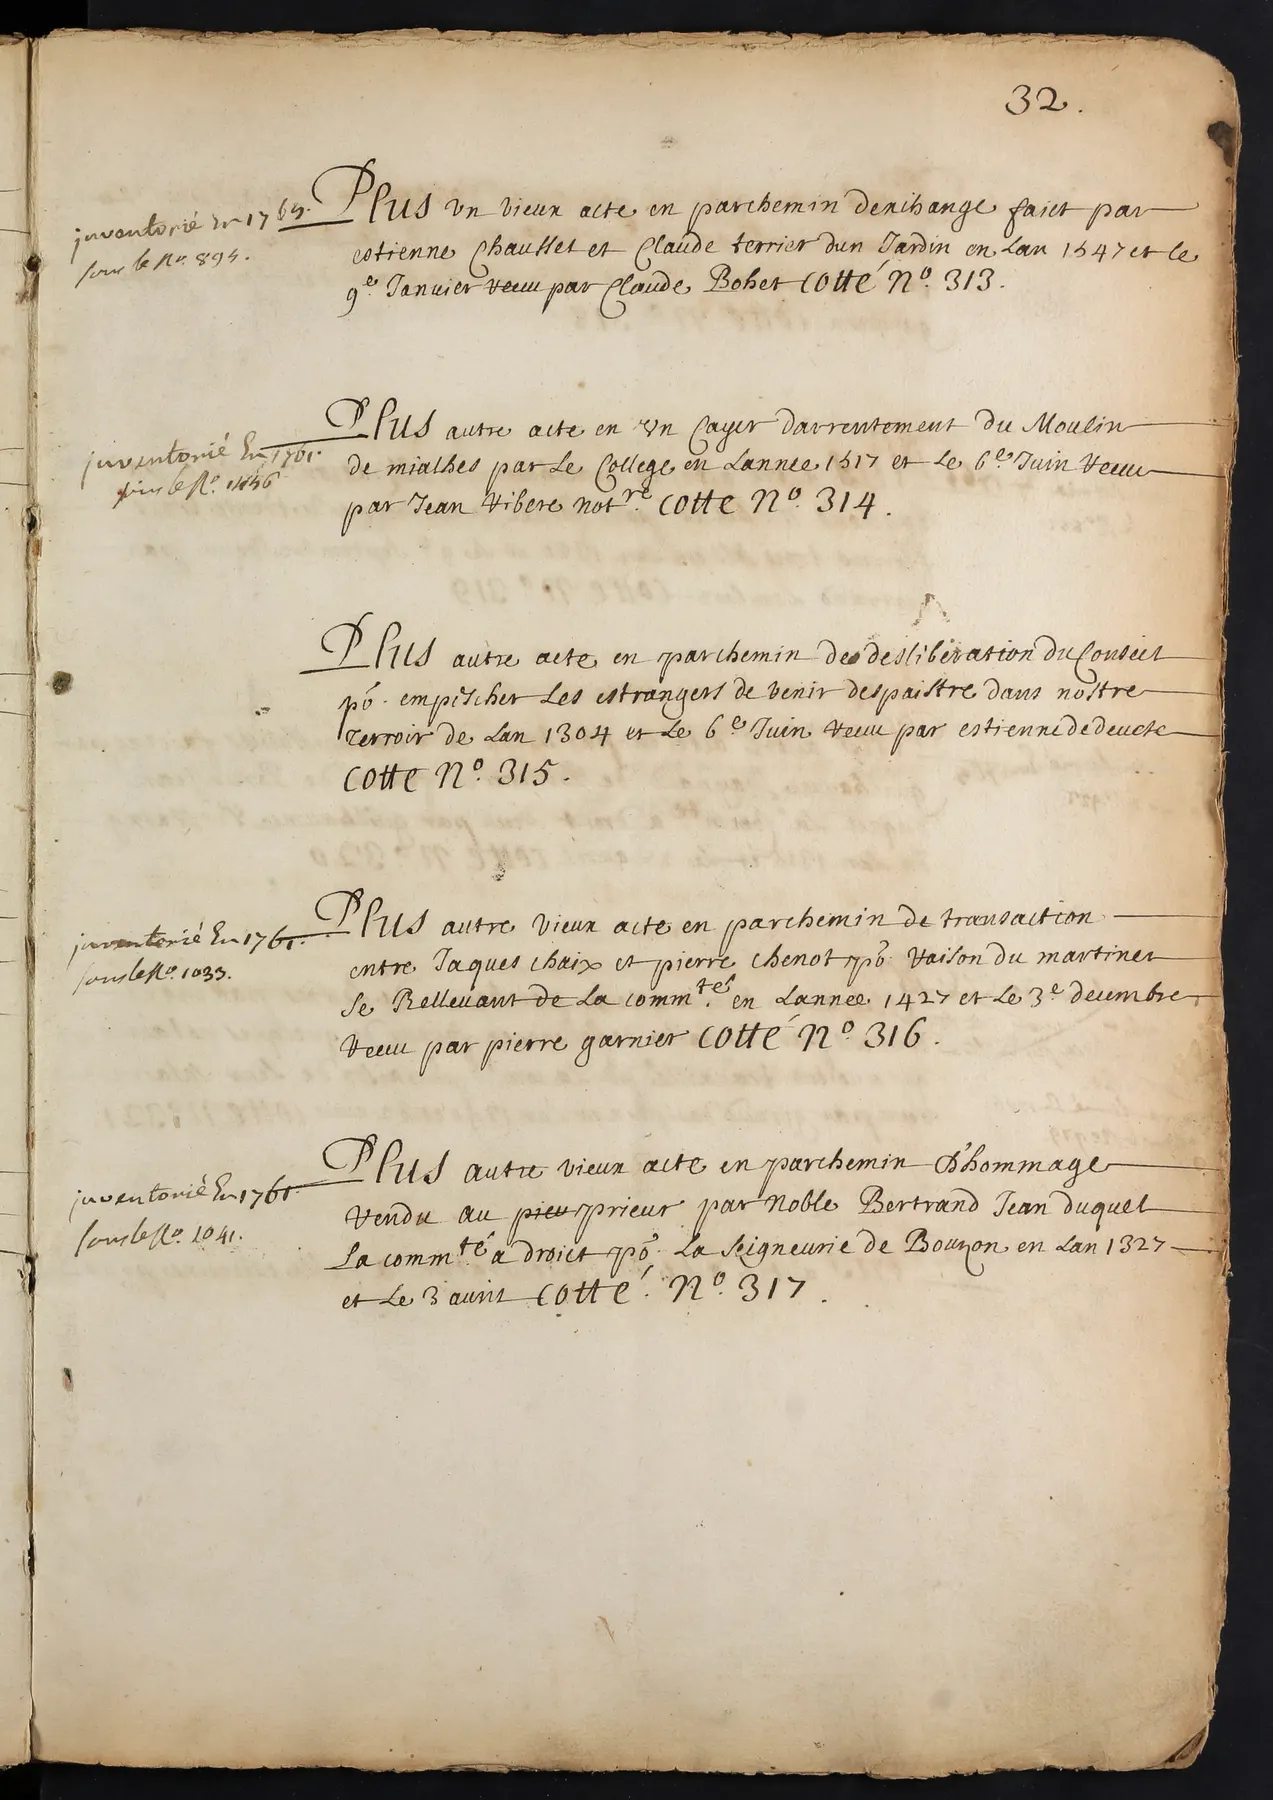 32.
inventorié En 1765.
sous le No. 894.
Plus vn vieux acte en parchemin deschange faict par
estienne Chausset et Claude terrier dun Jardin en Lan 1547 et le
9e. Janvier receu par Claude Bohet Cotté No. 313.
inventorié En 1761.
sous le No. 1456
Plus autre acte en vn Cayer darrentement du Moulin
de mialhes par Le College en Lannee 1517 et Le 6e Juin Receu
par Jean Vibere notre. Cotte No. 314.
Plus autre acte en parchemin de deslibération du Conseil
po. empescher Les estrangers de venir despaistre dans nostre
terroir de Lan 1304 et Le 6e. Juin Receu par estienne de
Cotte No. 315.
inventorié En 1761.
sous le No. 1033.
Plus autre vieux acte en parchemin de transaction
entre Jaques chaix et pierre chenot po Raison du martinet
se Rellevant de La commtés. en Lannee 1427 et Le 3e decembre
Receu par pierre garnier Cotté No. 316.
inventorié En 1761.
sous le No. 1041.
Plus autre vieux acte en parchemin d'hommage
Rendu au prieur par Noble Bertrand Jean duquel
La commté a droict po. La seigneurie de Bouzon en Lan 1327
et Le 3 avril Cotté. No. 317.